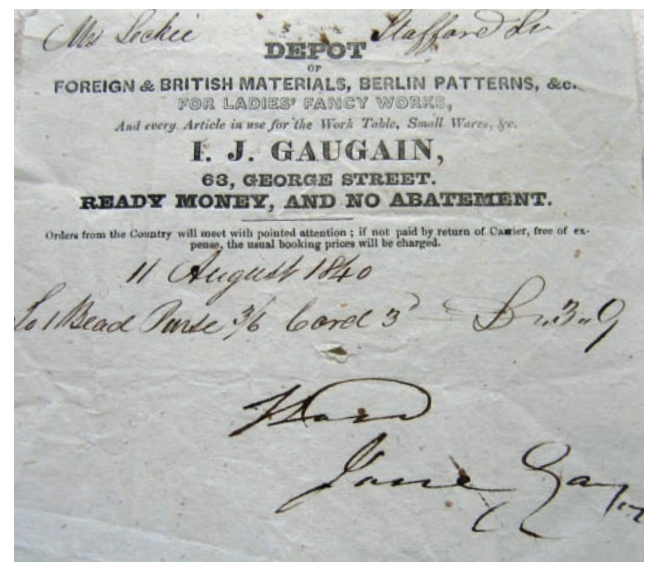 Mrs Leckie Stafford St
DEPOT
OF
FOREIGN & BRITISH MATERIALS, BERLIN PATTERNS, &c.
FOR LADIES' FANCY WORKS,
And every Article in use for the Work Table, Small Wares, &c.
I. J. GAUGAIN,
63, GEORGE STREET.
READY MONEY, AND NO ABATEMENT.
Orders from the Country will meet with pointed attention; if not paid by return of Carrier, free of ex-
pense, the usual booking prices will be charged.
11 August 1840
To 1 Bead Purse 3/6 Cord 3d 3 " 9
Jane